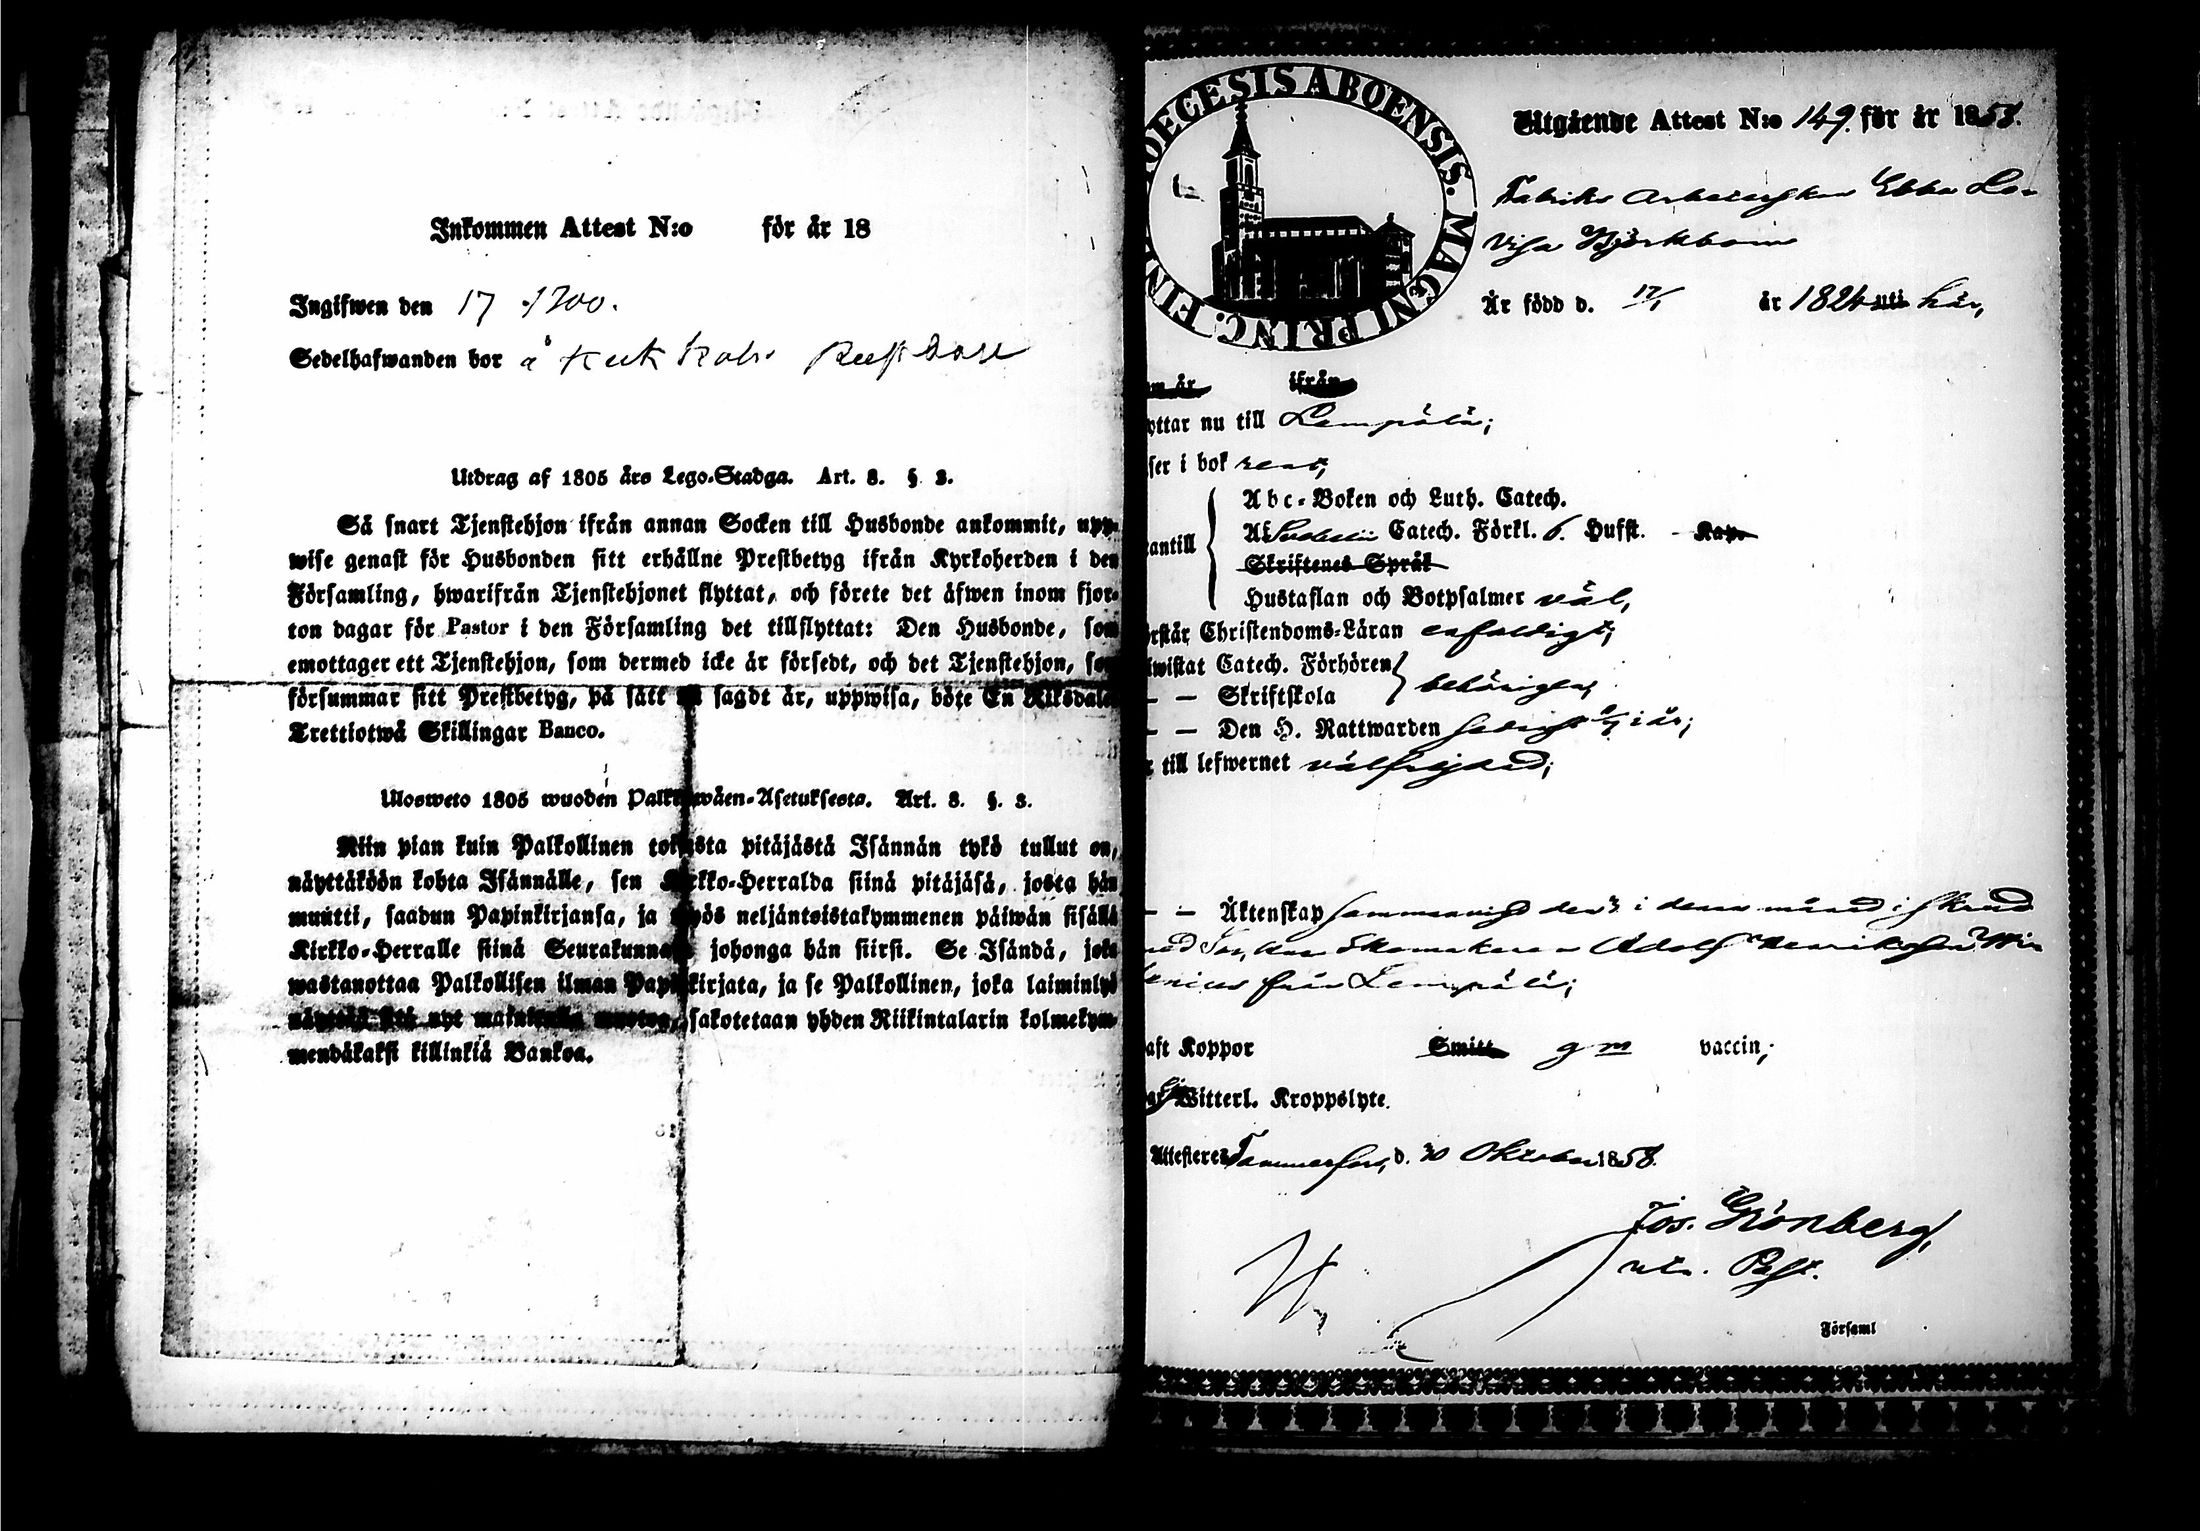 Inkommen Attest N:o för år 18
Ingifwen den 17
Sedelhafwanden bor å
Utdrag af 1805 års Lego-Stadga. Art. 8. § 3.
Så snart Tjenstehjon ifrån annan Socken till Husbonde ankommit, upp-
wise genast för Husbonden sitt erhållne Prestbetyg ifrån Kyrkoherden i den
Församling, hwarifrån Tjenstehjonet flyttat, och förete det äfwen inom fjor-
ton dagar för Pastor i den Församling det tillflyttat: Den Husbonde, som
emottager ett Tjenstehjon, som dermed icke är försedt, och det Tjenstehjon, som
försummar sitt Prestbetyg, på sätt sagdt är, uppwisa, böte En Riksdaler
Trettiotwå Skillingar Banco.
Ulosweto 1805 wuoden Art. 8. §. 3.
Niin pian kuin Palkollinen toisesta pitäjästä Isännän tykö tullut on,
näyttäköön kohta Isännälle, sen Kirkko-Herralda siinä pitäjäsä, josta hän
muutti, saadun Papinkirjansa, ja myös neljäntoistakymmenen päiwän sisällä
Kirkko-Herralle siinä johonga hän siirsi. Se Isändä, joka
wastanottaa Palkollisen ilman Papinkirjata, ja se Palkollinen, joka laiminlyö
sakotetaan yhden Riikintalarin kolmekym-
mendäkaksi killinkiä Bankoa.
DIOECESIS ABOENSIS. MAGNI PRINC. FIN
Utgående Attest N:o 149. för år 1858.
Fabriks Arbeterskan Ebba Lo-
visa Björkbom
Är född d. 17/1 år 1824 uti här,
om år ifrån
yttar nu till Lempälä;
ser i bok rent,
Abc-Boken och Luth. Catech.
Af Catech. Förkl. 6. Hufst. - Kap.
antill
Skriftenes Språk
Hustaflan och Botpsalmer väl,
rstår Christendoms-Läran enfaldigt;
wistat Catech. Förhören
behörigen,
— — Skriftskola
— — Den H. Nattwarden i år;
r till lefwernet välfrejdad;
— — Äktenskap sammanvigd den i denna månad i
med Adolf Henriksson
från Lempälä;
aft Koppor Smitt g m vaccin;
Witterl. Kroppslyte.
Attesteres Tammerfors, d. 30 Oktober 1858.
Jos. Grönberg,
v. Past.
Församl